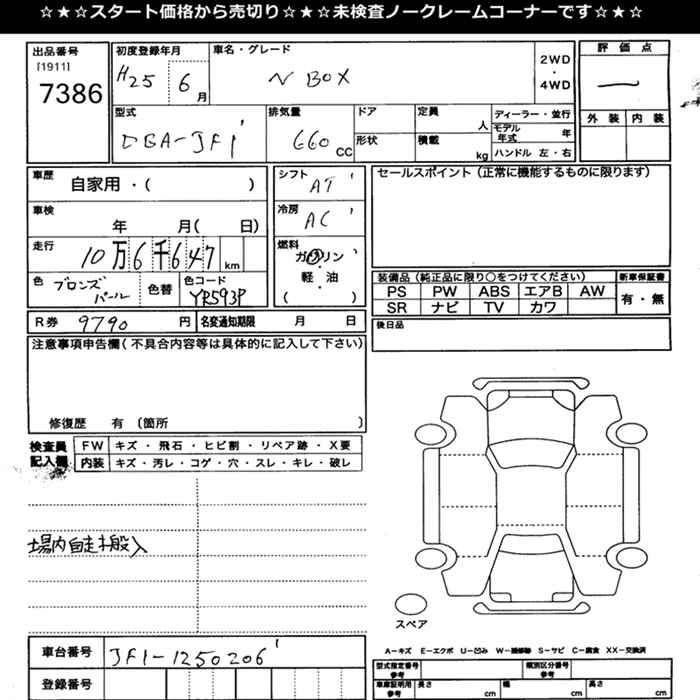 ☆★☆★スタート価格から売切り☆★☆★未検査ノークレームコーナーです☆★☆
出品番号
[1911]
7386
初度登録年月
H25 6月
車名・グレード
N BOX
2WD
・
4WD
評価点
一
外装 内装
型式
DBA-JF1
排気量
660 CC
ドア
形状
定員 人
積載 kg
ディーラー・並行
モデル年式 年
ハンドル 左・右
車歴
自家用・( )
車検
年 月( 日)
走行
10万6千647 km
色
ブロンズパール
色替
色コード
YR593P
シフト
AT
冷房
AC
燃料
ガソリン
・
軽油
( )
セールスポイント(正常に機能するものに限ります)
装備品(純正品に限り○をつけてください) 新車保証書
PS PW ABS エアB AW 有・無
SR ナビ TV カワ
後日品
R券 9790 円 名変通知期限 月 日
注意事項申告欄(不具合内容等は具体的に記入して下さい)
修復歴 有 〔箇所 〕
検査員記入欄
FW キズ・飛石・ヒビ割・リペア跡・X要
内装 キズ・汚レ・コゲ・穴・スレ・キレ・破レ
場内自走搬入
スペア
A-キズ E-エクボ U-凹み W-補修跡 S-サビ C-腐食 XX-交換済
車台番号 JF1-1250206
登録番号
型式指定番号 参考 類別区分番号 参考
車庫証明用 参考 長さ cm 幅 cm 高さ cm